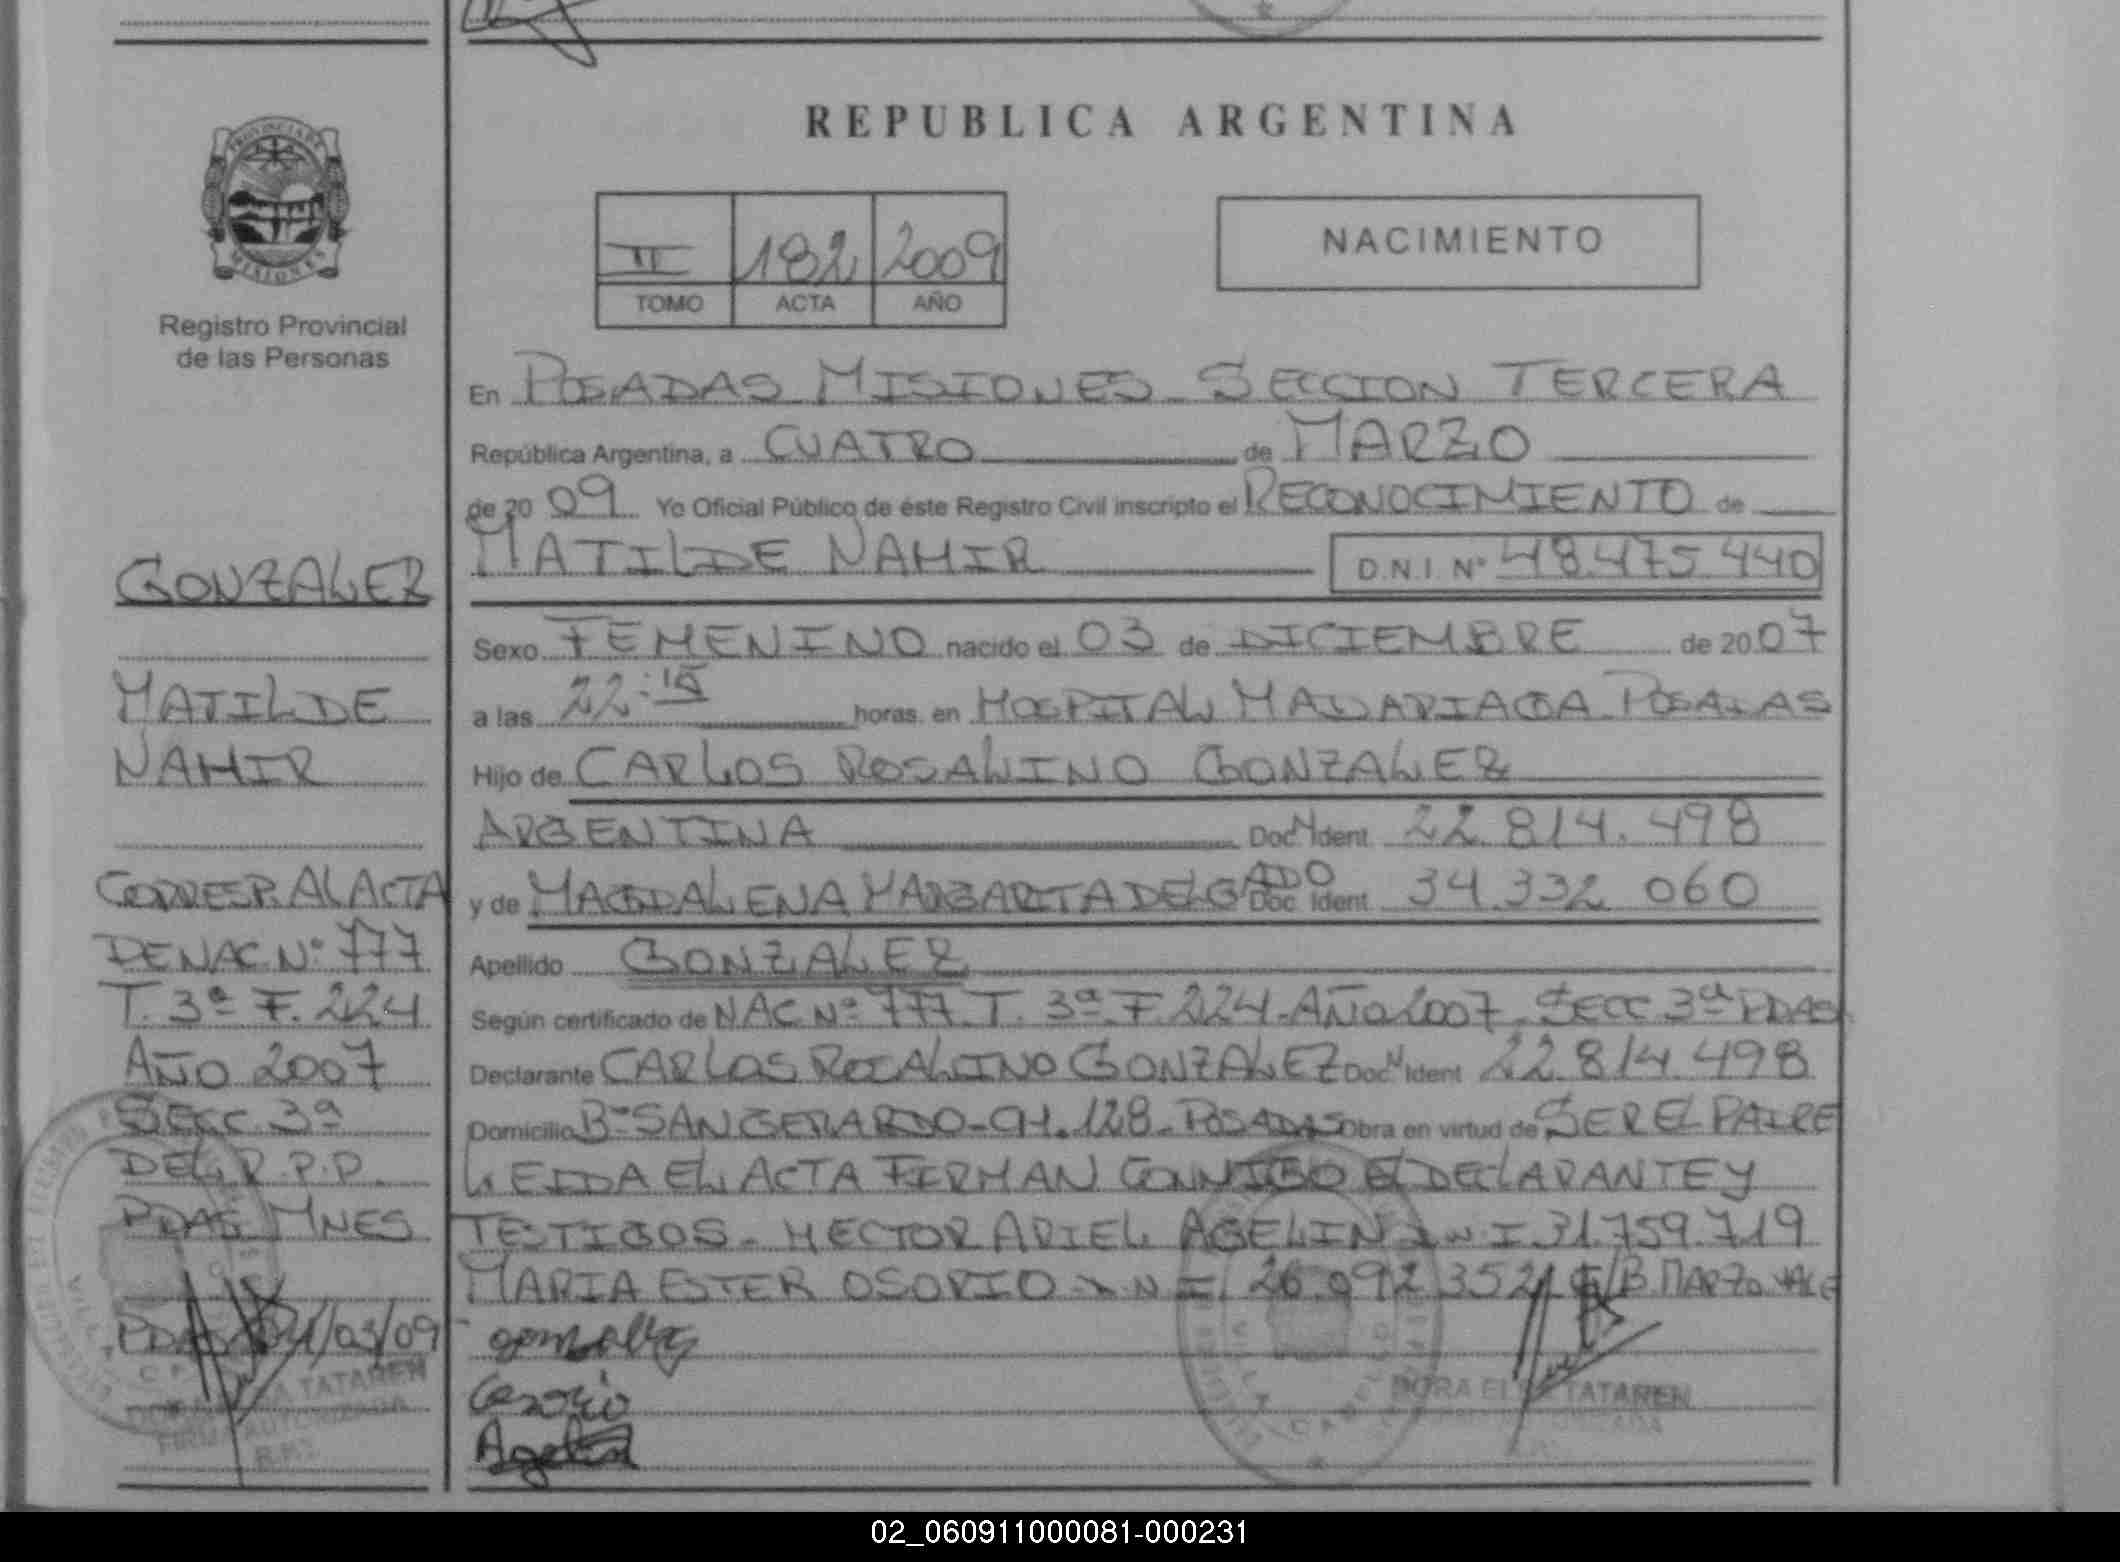 REPUBLICA ARGENTINA
PROVINCIA DE
MISIONES
Registro Provincial
de las Personas
II 182 2009
TOMO ACTA AÑO
NACIMIENTO
En POSADAS MISIONES - SECCION TERCERA
República Argentina, a CUATRO de MARZO
de 2009 Yo Oficial Público de éste Registro Civil inscripto el RECONOCIMIENTO de
MATILDE NAHIR D.N.I. Nº 48.475.440
Sexo FEMENINO nacido el 03 de DICIEMBRE de 2007
a las 22:15 horas. en HOSPITAL MADARIAGA POSADAS
Hijo de CARLOS ROSALINO GONZALEZ
ARGENTINA Doc. Ident. 22.814.498
y de MAGDALENA MARGARITA DELGADO Doc. Ident. 34.332.060
Apellido GONZALEZ
Según certificado de NAC Nº 777 T. 3ª F. 224 - AÑO 2007 - SECC 3ª PDAS
Declarante CARLOS ROSALINO GONZALEZ Doc. Ident. 22.814.498
Domicilio Bº SAN GERARDO - CH. 128 - POSADAS Obra en virtud de SER EL PADRE
LEIDA EL ACTA FIRMAN CONMIGO EL DECLARANTE Y
TESTIGOS - HECTOR ARIEL AGELIN D.N.I. 31.759.719
MARIA ESTER OSORIO D.N.I. 26.092.352 S/B. MARZO. VALE
gonzalez
Osorio
Agelin
DORA ELSA TATAREN
GONZALEZ
MATILDE
NAHIR
CORRESP. AL ACTA
DE NAC. Nº 777
T. 3ª F. 224
AÑO 2007
SECC. 3ª
DEL R.P.P.
PDAS MNES
PDAS 04/03/09
TATAREN
FIRMA AUTORIZADA
02_060911000081-000231